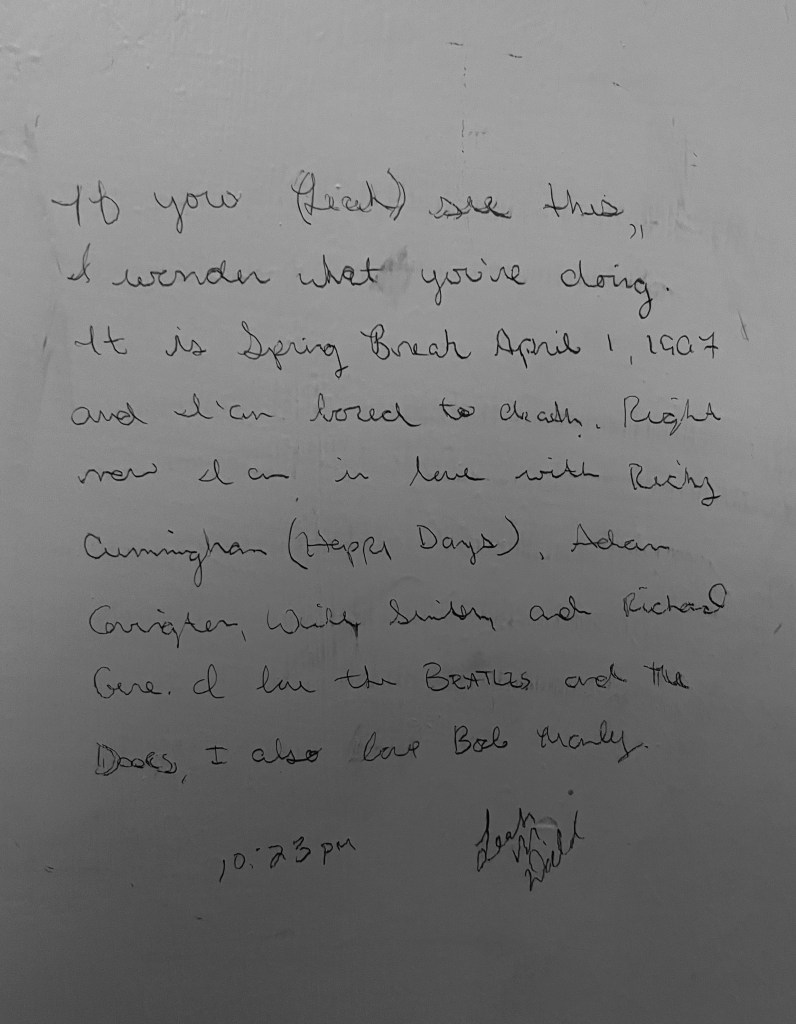 If you (Leah) see this,
I wonder what you're doing.
It is Spring Break April 1, 1997
and I'am bored to death. Right
now I am in love with Richy
Cunningham (Happy Days), Adam
Covington, Willy and Richard
Gere. I love the BEATLES and THE
DOORS, I also love Bob Marly.
10:23 pm
Leah